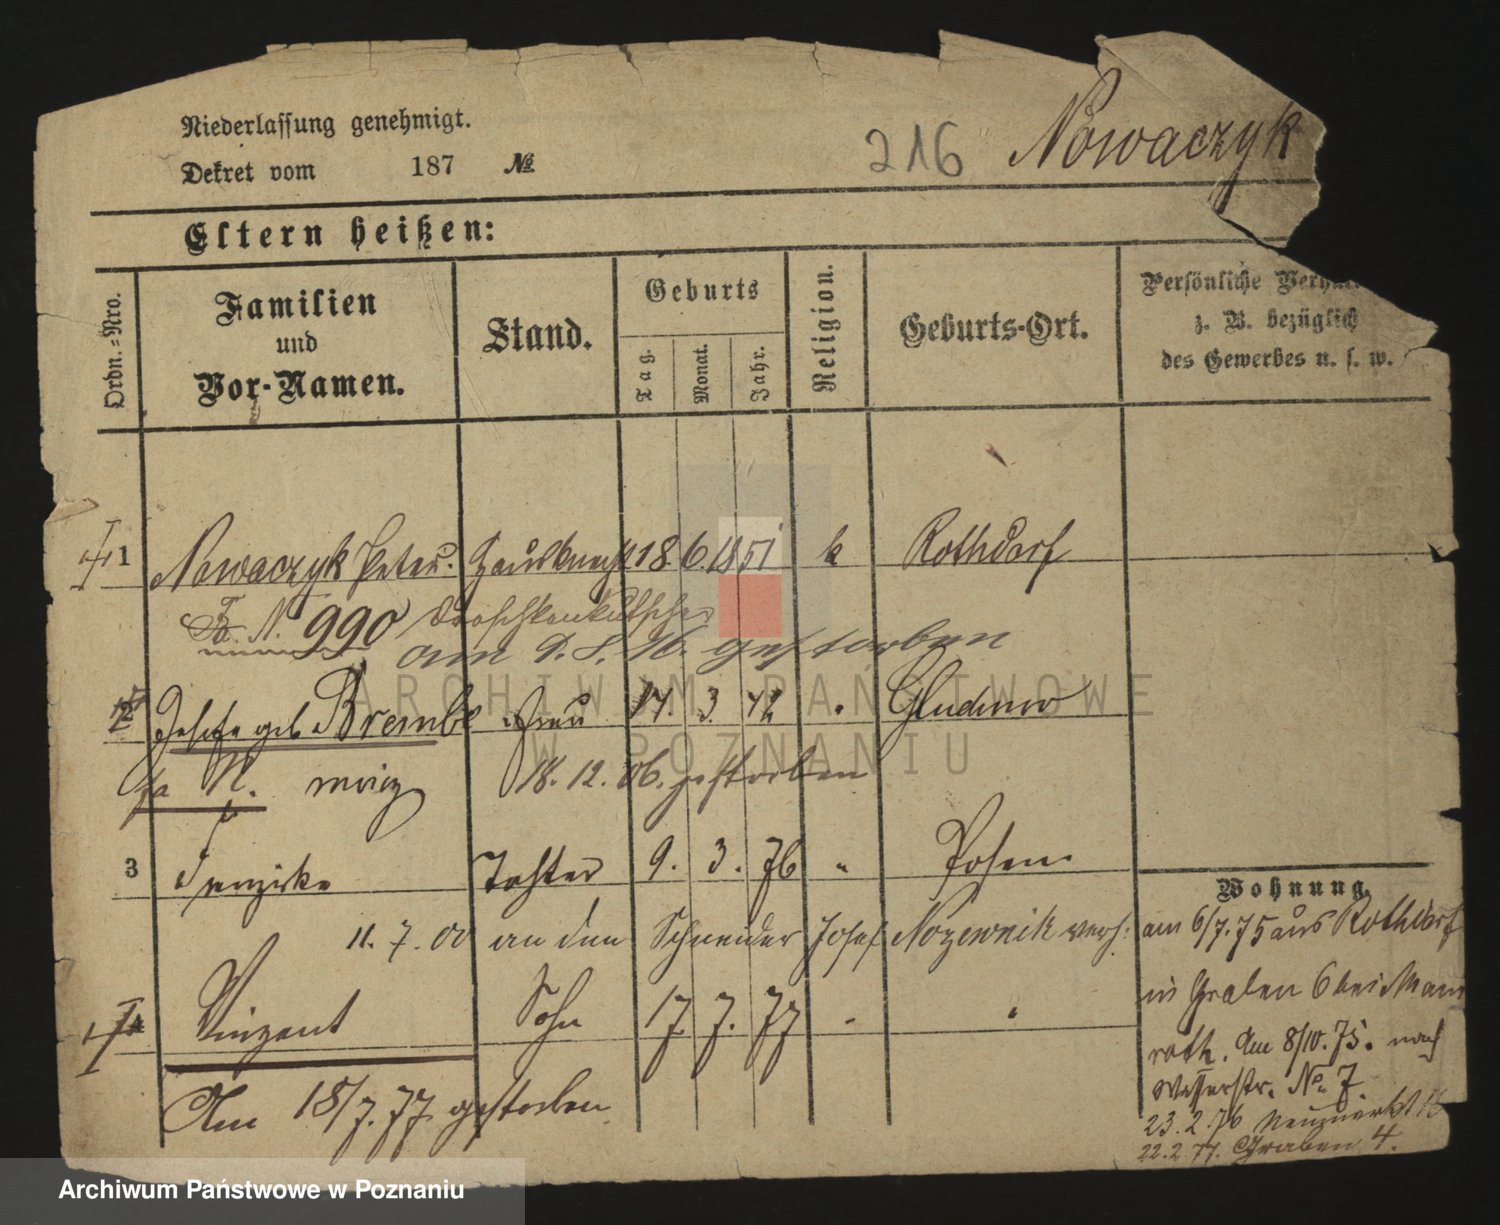 Niederlassung genehmigt.
216 Nowaczyk
Dekret vom 187 №
Eltern heißen:
Ordn.=Nro.
Familien
und
Vor-Namen.
Stand.
Geburts
Tag.
Monat.
Jahr.
Religion.
Geburts-Ort.
Persönliche
z. B. bezüglich
des Gewerbes u. s. w.
1 Nowaczyk Peter. Hausknecht 18. 6. 1851 k Rothdorf
N. 990 Droschkenkutscher
am 9. 5. 16. gestorben
2 Josefa geb. Brembe Frau 17. 3. " Gludowo
18. 12. 06. gestorben
3 Tochter 9. 3. 76 " Posen
11. 7. 00 an den Schneider Josef verh.
4 Vinzent Sohn 17. 7. 77 " "
Am 18/7. 77. gestorben
Wohnung.
am 6/7. 75 aus Rothdorf
in Graben 6 bei
roth. Am 8/10. 75. nach
Wasserstr. No 7
23. 2. 76 Neuermarkt 16
22. 2. 77. Graben 4.
ARCHIWUM PAŃSTWOWE
W POZNANIU
Archiwum Państwowe w Poznaniu